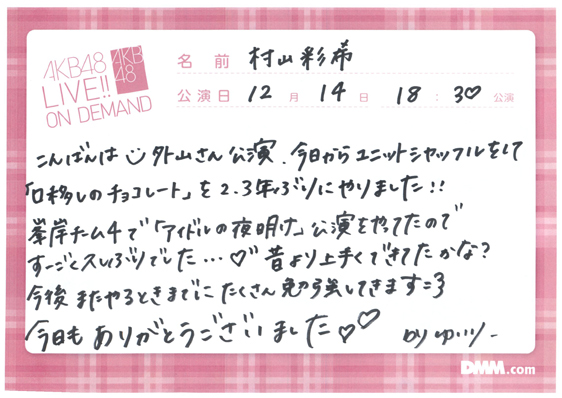 AKB48
LIVE!!
ON DEMAND
AKB
48
名前 村山彩希
公演日 12月14日 18:30♡公演
こんばんは 外山さん公演、今日からユニットシャッフルをして
「口移しのチョコレート」を2.3年ぶりにやりました!!
峯岸チーム4で「アイドルの夜明け」公演をやってたので
すーごく久しぶりでした…♡ 昔より上手くできてたかな?
今後またやるときまでにたくさん勉強してきます=3
今日もありがとうございました♡♡ byゆいりー
DMM.com